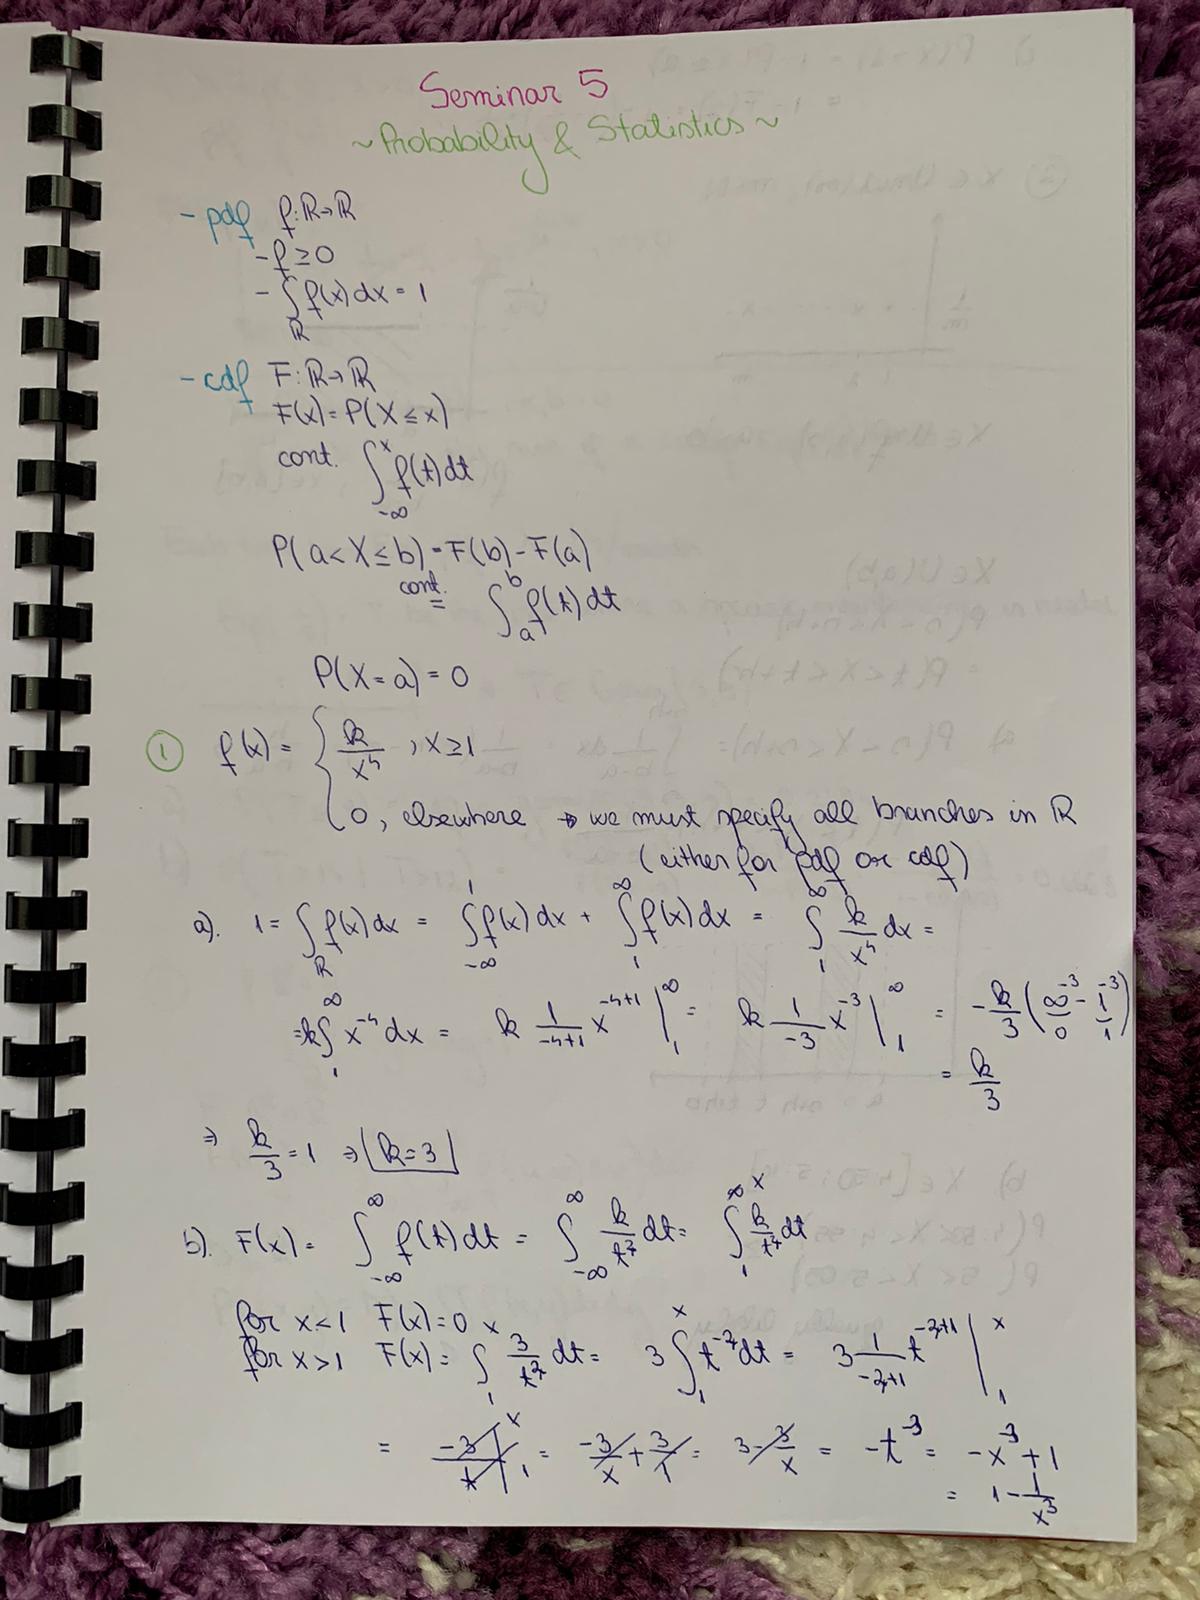 Seminar 5
~ Probability & Statistics ~
- pdf f: ℝ→ℝ
- f ≥ 0
- ∫_ℝ f(x) dx = 1
- cdf F: ℝ→ℝ
F(x) = P(X ≤ x)
cont. ∫_{-∞}^{x} f(t) dt
P(a < X ≤ b) = F(b) - F(a)
cont. = ∫_a^b f(t) dt
P(X = a) = 0
① f(x) = { k/x⁴ , x ≥ 1
0, elsewhere → we must specify all branches in ℝ
(either for pdf or cdf)
a). 1 = ∫_ℝ f(x) dx = ∫_{-∞}^{1} f(x) dx + ∫_1^∞ f(x) dx = ∫_1^∞ k/x⁴ dx =
= k ∫_1^∞ x^{-4} dx = k 1/(-4+1) x^{-4+1} |_1^∞ = k 1/-3 x^{-3} |_1^∞ = -k/3 (∞^{-3} - 1^{-3})
0 1
= k/3
⇒ k/3 = 1 ⇒ k = 3
b). F(x) = ∫_{-∞}^{∞} f(t) dt = ∫_{-∞}^{∞} k/t⁴ dt = ∫_1^x k/t⁴ dt
for x < 1 F(x) = 0
for x > 1 F(x) = ∫_1^x 3/t⁴ dt = 3 ∫_1^x t^{-4} dt = 3 1/(-4+1) t^{-4+1} |_1^x
= -3/t |_1^x = -3/x + 3/1 = 3 - 3/x = -t^{-3} = -x^{-3} + 1
= 1 - 1/x³